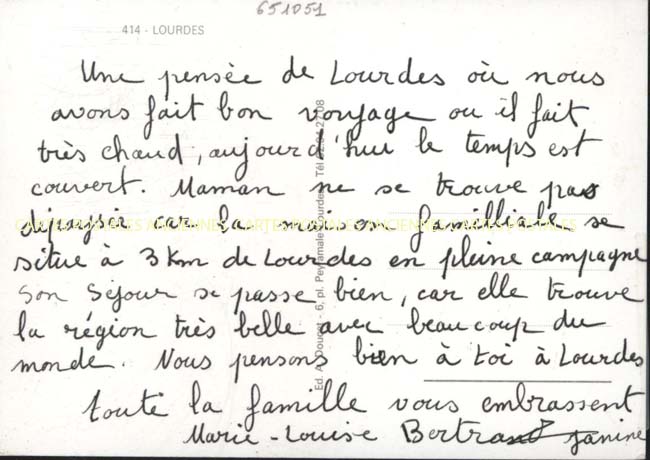 651051
414 - LOURDES
Une pensée de Lourdes où nous
avons fait bon voyage ou il fait
très chaud, aujourd'hui le temps est
couvert. Maman ne se trouve pas
dépaysée car la maison familliale se
situe à 3 Km de Lourdes en pleine campagne
Son Séjour se passe bien, car elle trouve
la région très belle avec beaucoup du
monde. Nous pensons bien à toi à Lourdes
toute la famille vous embrassent
Marie-Louise Bertrand Janine
Ed. A. Doucet - 6, pl. Peyramale Lourdes - Tél.
CARTES POSTALES ANCIENNES CARTES POSTALES ANCIENNES CARTES POSTALES